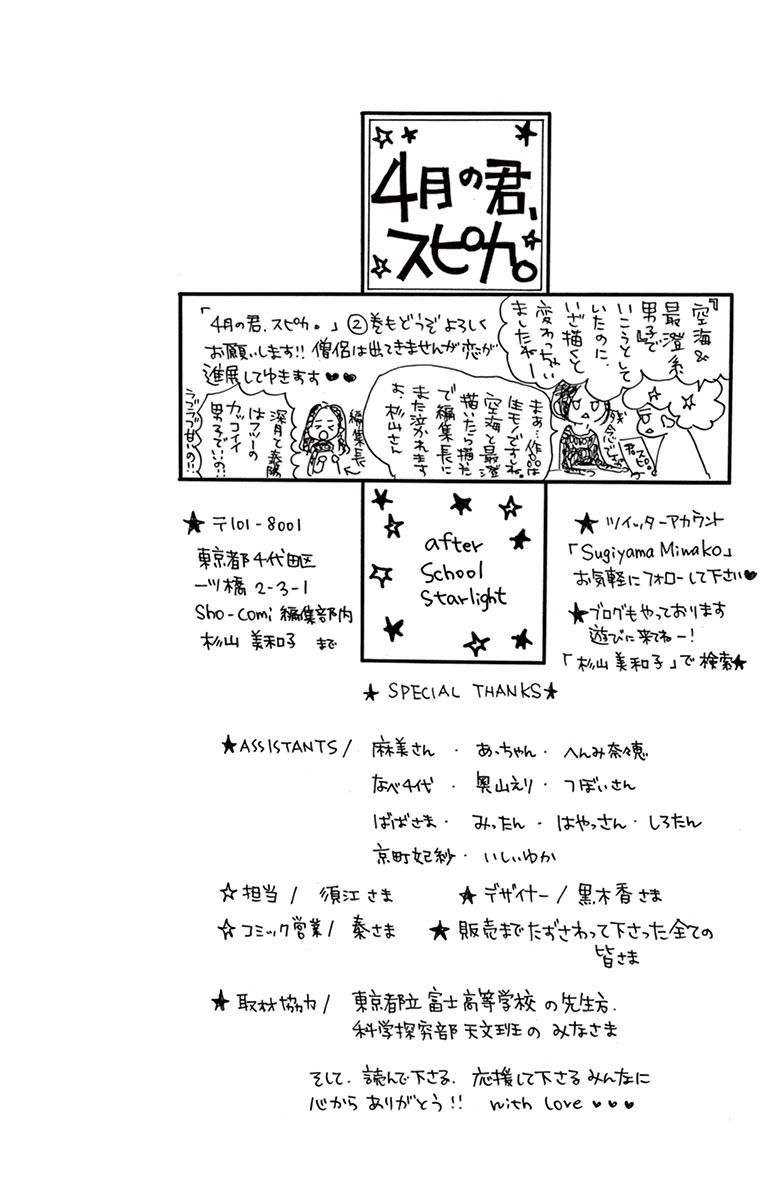 4月の君、
スピカ。
『空海&
最澄系
男子』で
いこうとして
いたのに、
いざ描くと
変わっちゃい
ましたねー
残念です。
まあ…作品は
生モノですね。
空海と最澄
描いたら描いた
で編集長に
また泣かれます
よ、杉山さん
「4月の君、スピカ。」②巻もどうぞよろしく
お願いします!! 僧侶は出てきませんが恋が
進展してゆきます♥♥
編集長
深月と泰陽
はフツーの
カッコイイ
男子でいいの!!
ラブラブ甘いの!!
after
School
Starlight
★〒101-8001
東京都千代田区
一ツ橋2-3-1
Sho-Comi編集部内
杉山美和子 まで
★ツイッターアカウント
「Sugiyama Miwako」
お気軽にフォローして下さい♥
★ブログもやっております
遊びに来てねー!
「杉山美和子」で検索★
★ SPECIAL THANKS★
★ASSISTANTS/ 麻美さん・あっちゃん・へんみ奈々恵
なべ千代・奥山えり・つぼいさん
ばばさま・みったん・はやっさん・しろたん
京町妃紗・いしいゆか
☆担当/ 須江さま ★デザイナー/黒木香さま
☆コミック営業/ 秦さま ★販売までたずさわって下さった全ての
皆さま
★取材協力/ 東京都立富士高等学校の先生方、
科学探究部天文班のみなさま
そして、読んで下さる、応援して下さるみんなに
心からありがとう!! with love♥♥♥